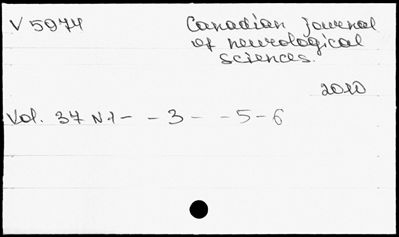 V 5974
Canadian journal
of neurological
sciences.
2010
Vol. 37 N.1- - 3 - - 5 - 6